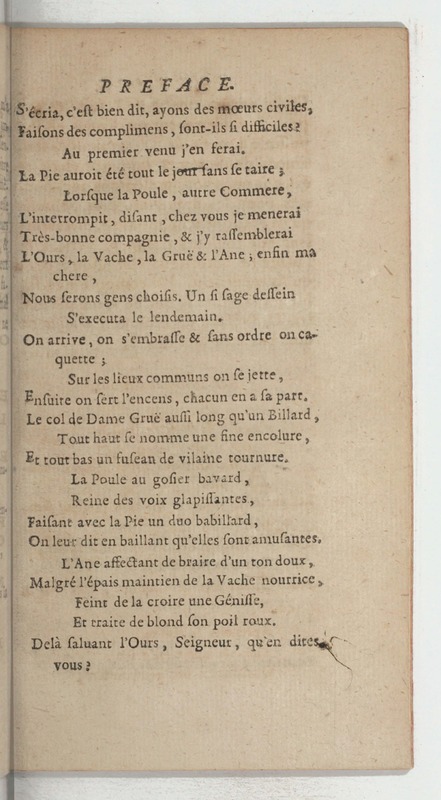 PREFACE.
S'écria, c'est bien dit, ayons des mœurs civiles,
Faisons des complimens, sont-ils si difficiles?
Au premier venu j'en ferai.
La Pie auroit été tout le jour sans se taire ;
Lorsque la Poule, autre Commere,
L'interrompit, disant, chez vous je menerai
Très-bonne compagnie, & j'y rassemblerai
L'Ours, la Vache, la Gruë & l'Ane ; enfin ma
chere,
Nous serons gens choisis. Un si sage dessein
S'executa le lendemain.
On arrive, on s'embrasse & sans ordre on ca-
quette ;
Sur les lieux communs on se jette,
Ensuite on sert l'encens, chacun en a sa part.
Le col de Dame Gruë aussi long qu'un Billard,
Tout haut se nomme une fine encolure,
Et tout bas un fuseau de vilaine tournure.
La Poule au gosier bavard,
Reine des voix glapissantes,
Faisant avec la Pie un duo babillard,
On leur dit en baillant qu'elles sont amusantes.
L'Ane affectant de braire d'un ton doux,
Malgré l'épais maintien de la Vache nourrice,
Feint de la croire une Génisse,
Et traite de blond son poil roux.
Delà saluant l'Ours, Seigneur, qu'en dites
vous?